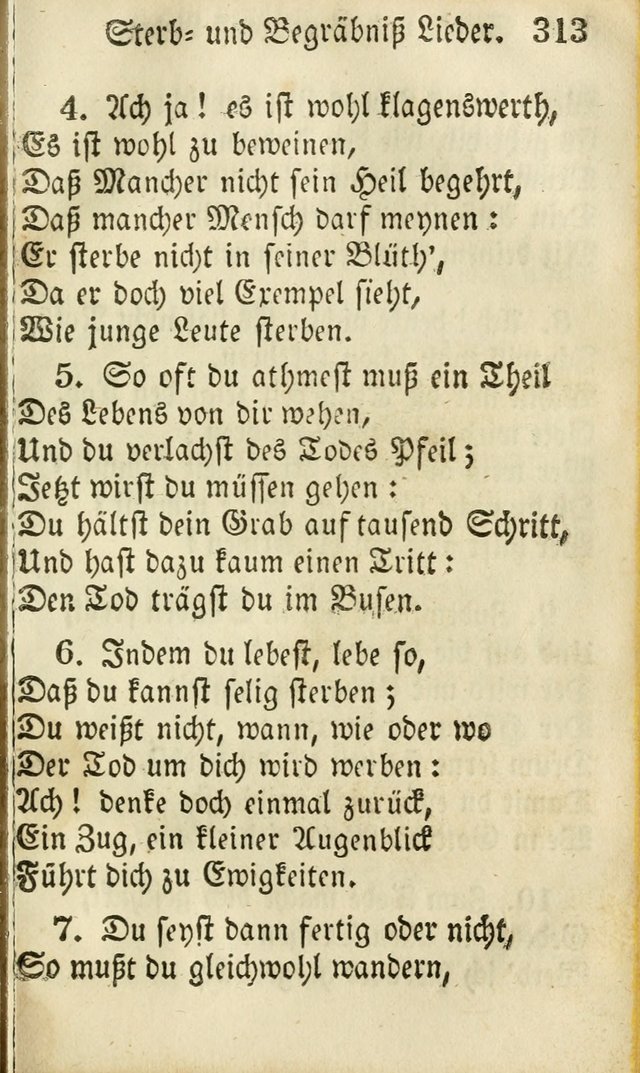 Sterb- und Begräbniß Lieder. 313
4. Ach ja! es ist wohl klagenswerth,
Es ist wohl zu beweinen,
Daß Mancher nicht sein Heil begehrt,
Daß mancher Mensch darf meynen:
Er sterbe nicht in seiner Blüth',
Da er doch viel Exempel sieht,
Wie junge Leute sterben.
5. So oft du athmest muß ein Theil
Des Lebens von dir wehen,
Und du verlachst des Todes Pfeil;
Jetzt wirst du müssen gehen:
Du hältst dein Grab auf tausend Schritt,
Und hast dazu kaum einen Tritt:
Den Tod trägst du im Busen.
6. Indem du lebest, lebe so,
Daß du kannst selig sterben;
Du weißt nicht, wann, wie oder wo
Der Tod um dich wird werben:
Ach! denke doch einmal zurück,
Ein Zug, ein kleiner Augenblick
Führt dich zu Ewigkeiten.
7. Du seyst dann fertig oder nicht,
So mußt du gleichwohl wandern,